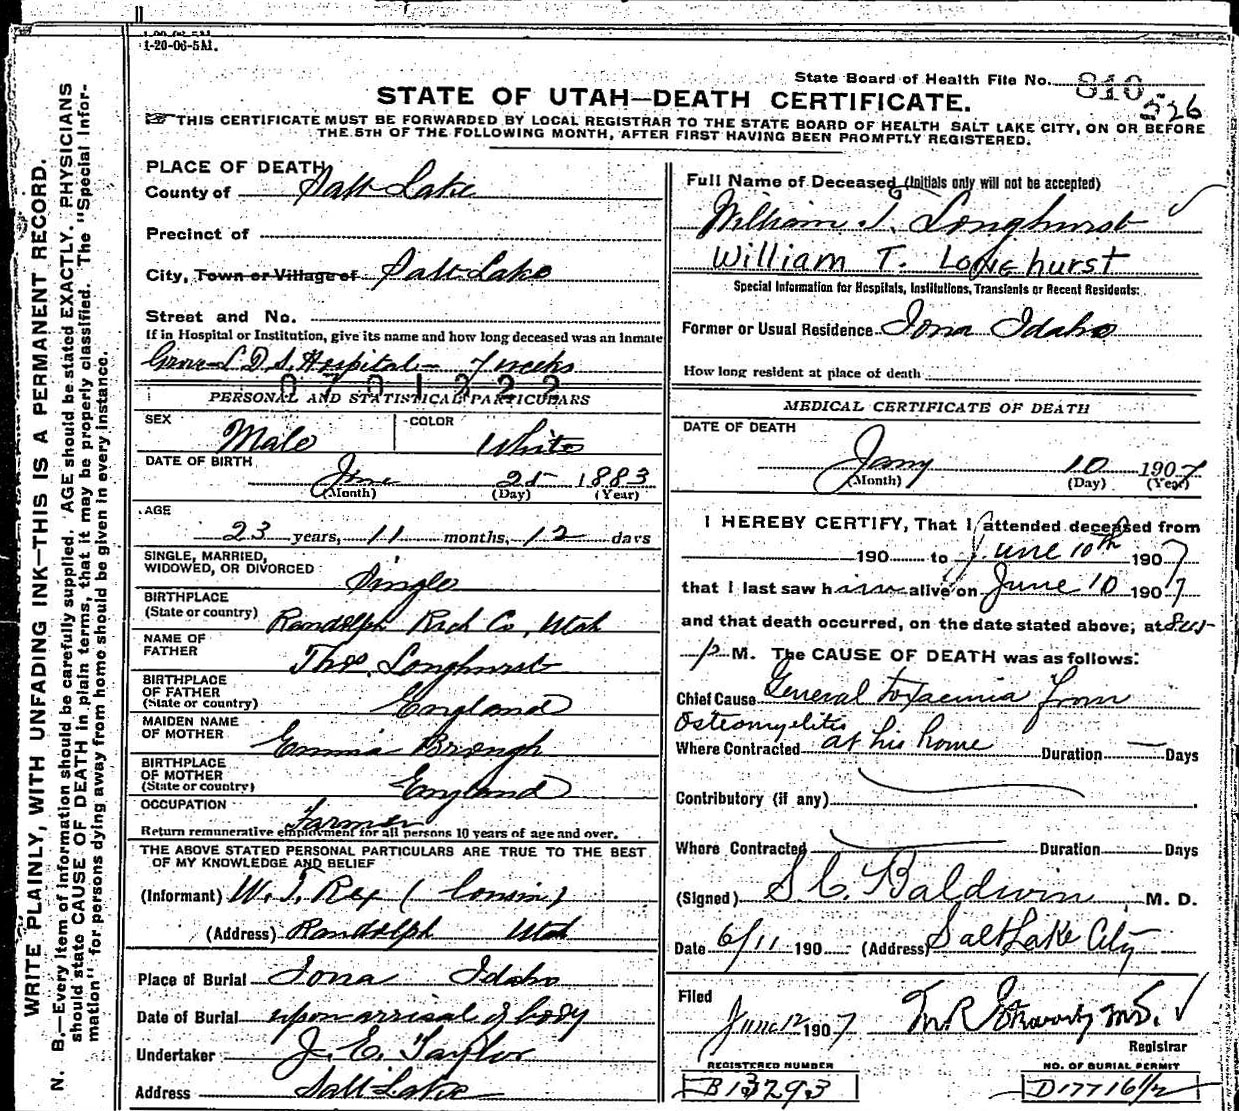 1-20-06-5M.
State Board of Health File No. 810
526
STATE OF UTAH—DEATH CERTIFICATE.
THIS CERTIFICATE MUST BE FORWARDED BY LOCAL REGISTRAR TO THE STATE BOARD OF HEALTH SALT LAKE CITY, ON OR BEFORE
THE 5TH OF THE FOLLOWING MONTH, AFTER FIRST HAVING BEEN PROMPTLY REGISTERED.
WRITE PLAINLY, WITH UNFADING INK—THIS IS A PERMANENT RECORD.
N. B.—Every item of information should be carefully supplied. AGE should be stated EXACTLY. PHYSICIANS
should state CAUSE OF DEATH in plain terms, that it may be properly classified. The "Special Infor-
mation" for persons dying away from home should be given in every instance.
PLACE OF DEATH
County of Salt Lake
Precinct of
City, Town or Village of Salt Lake
Street and No.
If in Hospital or Institution, give its name and how long deceased was an inmate
L.D.S. Hospital - 7 weeks
0701322
PERSONAL AND STATISTICAL PARTICULARS
SEX Male COLOR White
DATE OF BIRTH June 25 1883
(Month) (Day) (Year)
AGE
23 years, 11 months, 12 days
SINGLE, MARRIED,
WIDOWED, OR DIVORCED Single
BIRTHPLACE
(State or country) Randolph Rich Co, Utah
NAME OF
FATHER Thos. Longhurst
BIRTHPLACE
OF FATHER
(State or country) England
MAIDEN NAME
OF MOTHER Emma Brough
BIRTHPLACE
OF MOTHER
(State or country) England
OCCUPATION Farmer
Return remunerative employment for all persons 10 years of age and over.
THE ABOVE STATED PERSONAL PARTICULARS ARE TRUE TO THE BEST
OF MY KNOWLEDGE AND BELIEF
(Informant) W. T. Rex (Cousin)
(Address) Randolph Utah
Place of Burial Iona Idaho
Date of Burial upon arrival of body
Undertaker J. E. Taylor
Address Salt Lake
Full Name of Deceased (Initials only will not be accepted)
William T. Longhurst
William T. Longhurst
Special Information for Hospitals, Institutions, Transients or Recent Residents:
Former or Usual Residence Iona Idaho
How long resident at place of death
MEDICAL CERTIFICATE OF DEATH
DATE OF DEATH
Jany 10 1907
(Month) (Day) (Year)
I HEREBY CERTIFY, That I attended deceased from
190 to June 10th 1907
that I last saw him alive on June 10 1907
and that death occurred, on the date stated above, at 8:45
P M. The CAUSE OF DEATH was as follows:
Chief Cause General toxaemia from
Osteomyelitis
Where Contracted at his home Duration — Days
Contributory (if any)
Where Contracted Duration Days
(Signed) S C. Baldwin, M. D.
Date 6/11 190 (Address) Salt Lake City
Filed
June 12 1907
Registrar
REGISTERED NUMBER NO. OF BURIAL PERMIT
B13293 D17716½